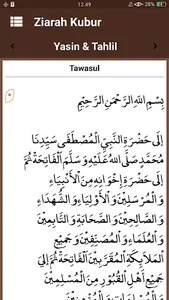 12.49
Ziarah Kubur
Yasin & Tahlil
Tawasul
بِسْمِ اللهِ الرَّحْمٰنِ الرَّحِيْمِ
إِلَى حَضْرَةِ النَّبِيِّ الْمُصْطَفَى سَيِّدِنَا
مُحَمَّدٍ صَلَّى اللهُ عَلَيْهِ وَسَلَّمَ الْفَاتِحَةُ ثُمَّ
إِلَى حَضْرَةِ إِخْوَانِهِ مِنَ الْأَنْبِيَاءِ
وَالْمُرْسَلِيْنَ وَالْأَوْلِيَاءِ وَالشُّهَدَاءِ
وَالصَّالِحِيْنَ وَالصَّحَابَةِ وَالتَّابِعِيْنَ
وَالْعُلَمَاءِ وَالْمُصَنِّفِيْنَ وَجَمِيْعِ
الْمَلَائِكَةِ الْمُقَرَّبِيْنَ الْفَاتِحَةُ ثُمَّ إِلَى
جَمِيْعِ أَهْلِ الْقُبُوْرِ مِنَ الْمُسْلِمِيْنَ